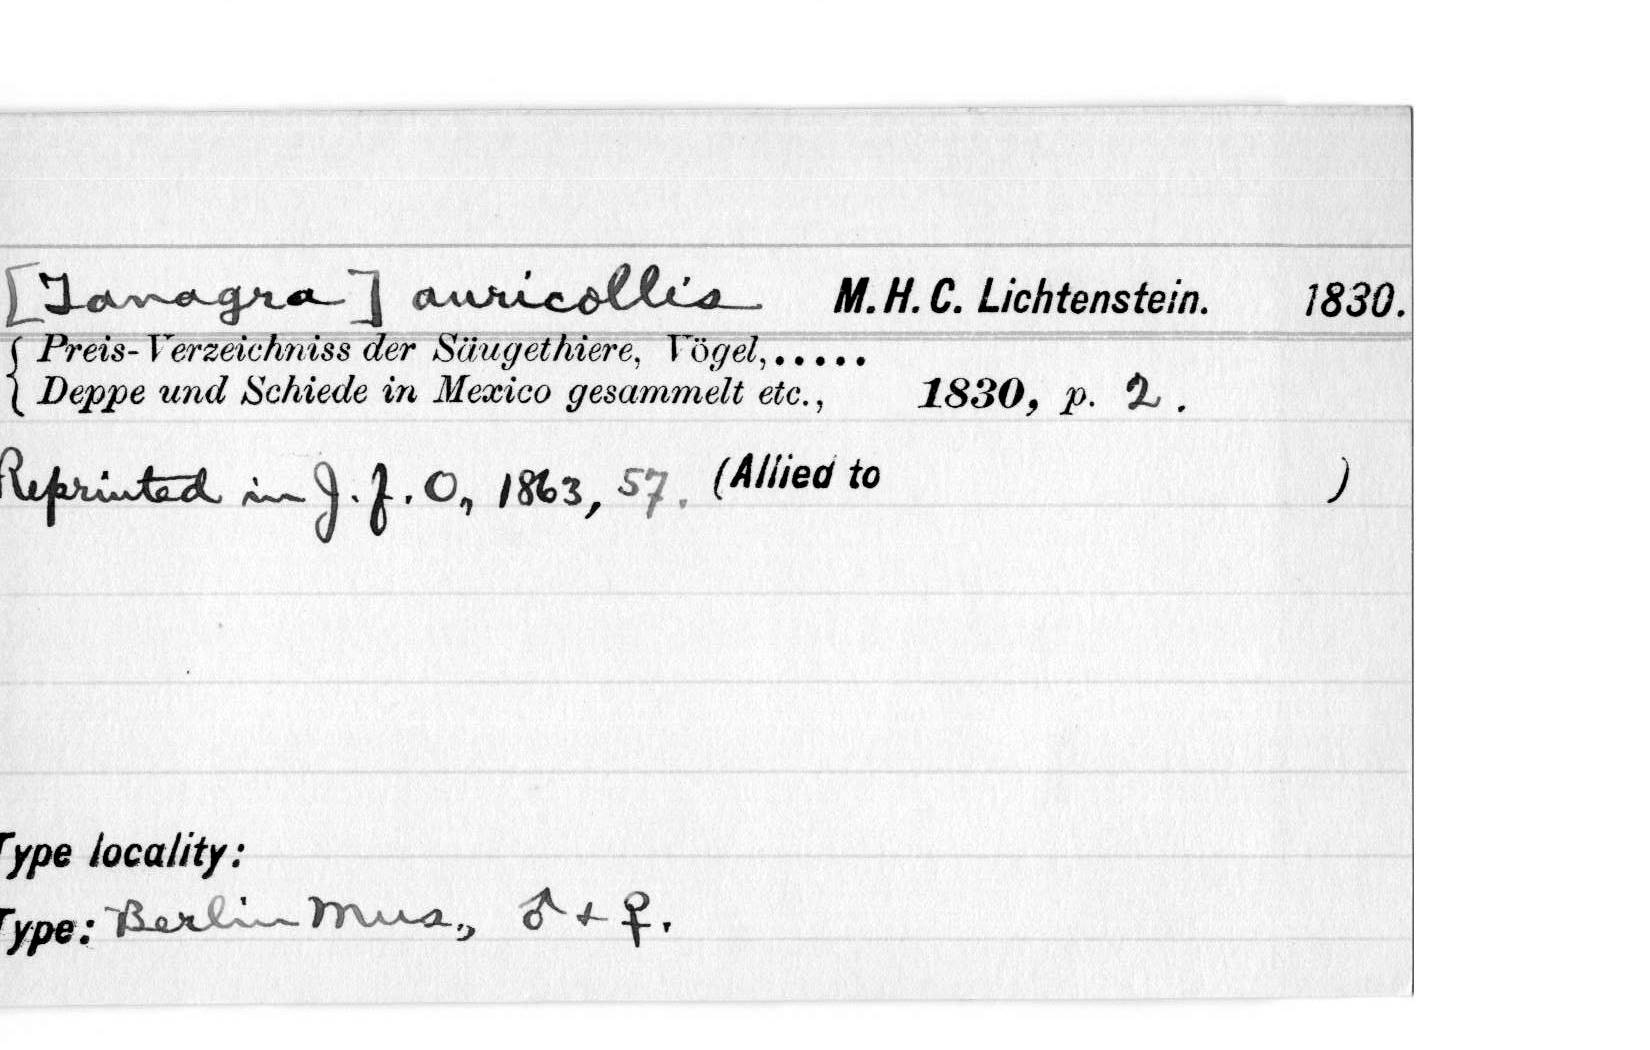 [Tanagra] auricollis M. H. C. Lichtenstein. 1830.
{ Preis-Verzeichniss der Säugethiere, Vögel,.....
{ Deppe und Schiede in Mexico gesammelt etc., 1830, p. 2.
Reprinted in J. f. O., 1863, 57. (Allied to )
Type locality:
Type: Berlin Mus., ♂ + ♀.